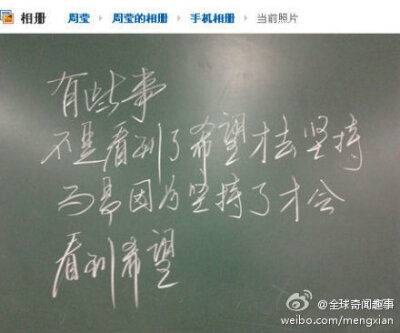 相册 周莹 › 周莹的相册 › 手机相册 › 当前照片
有些事
不是看到了希望才去坚持
而是因为坚持了才会
看到希望
@全球奇闻趣事
weibo.com/mengxian